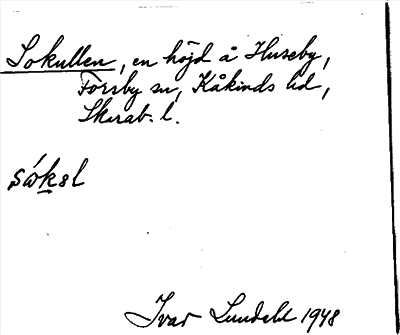 Sokullen, en höjd å Huseby,
Forsby sn, Kåkinds hd,
Skarab. l.
Ivar Lundahl 1948